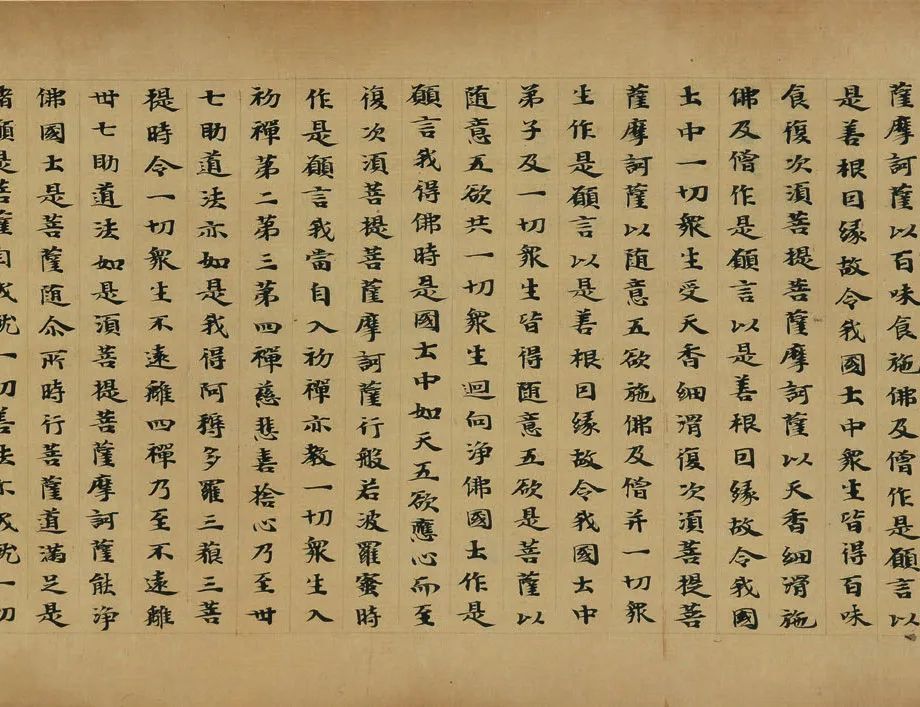 薩摩訶薩以百味食施佛及僧作是願言以
是善根因緣故令我國土中衆生皆得百味
食復次湏菩提菩薩摩訶薩以天香細滑施
佛及僧作是願言以是善根因緣故令我國
土中一切衆生受天香細滑復次湏菩提菩
薩摩訶薩以随意五欲施佛及僧并一切衆
生作是願言以是善根因緣故令我國土中
弟子及一切衆生皆得随意五欲是菩薩以
随意五欲共一切衆生迴向淨佛國土作是
願言我得佛時是國土中如天五欲應心而至
復次湏菩提菩薩摩訶薩行般若波羅蜜時
作是願言我當自入初禪亦教一切衆生入
初禪第二第三第四禪慈悲喜捨心乃至卅
七助道法亦如是我得阿耨多羅三藐三菩
提時令一切衆生不遠離四禪乃至不遠離
卅七助道法如是湏菩提菩薩摩訶薩能淨
佛國土是菩薩随尒所時行菩薩道滿足是
諸願是菩薩自成就一切善法亦成就一切